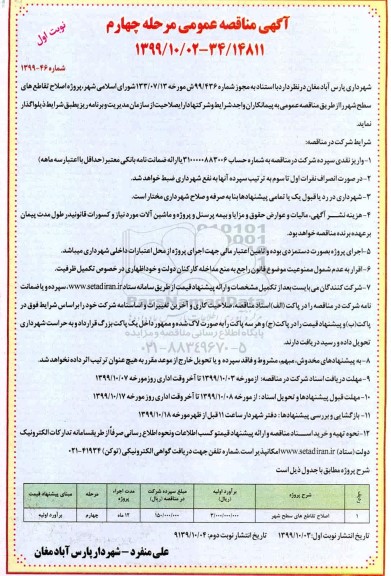 آگهی مناقصه عمومی مرحله چهارم
۱۳۹۹/۱۰/۰۲-۳۴/۱۴۸۱۱
نوبت اول
شماره ۴۶-۱۳۹۹
شهرداری پارس آباد مغان در نظر دارد با استناد به مجوز شماره ۹۹/۴۳۶/ش مورخه ۱۳۳/۰۷/۱۳ شورای اسلامی شهر، پروژه اصلاح تقاطع های
سطح شهر را از طریق مناقصه عمومی به پیمانکاران واجد شرایط و شرکتهای دارای صلاحیت از سازمان مدیریت و برنامه ریزی طبق شرایط ذیل واگذار
نماید.
شرایط شرکت در مناقصه:
۱- واریز نقدی سپرده شرکت در مناقصه به شماره حساب ۳۱۰۰۰۰۰۸۸۳۰۰۶ یا ارائه ضمانت نامه بانکی معتبر (حداقل با اعتبار سه ماهه)
۲- در صورت انصراف نفرات اول تا سوم به ترتیب سپرده آنها به نفع شهرداری ضبط خواهد شد.
۳- شهرداری در رد یا قبول یک یا تمامی پیشنهادها بنا به صرفه و صلاح شهرداری مختار است.
۴- هزینه نشر آگهی، مالیات و عوارض حقوق و مزایا و بیمه پرسنل و پروژه و ماشین آلات مورد نیاز و کسورات قانونی در طول مدت پیمان
بر عهده برنده مناقصه خواهد بود.
۵- اجرای پروژه بصورت دستمزدی بوده و تامین اعتبار مالی جهت اجرای پروژه از محل اعتبارات داخلی شهرداری میباشد.
۶- اقرار به عدم شمول ممنوعیت موضوع قانون راجع به منع مداخله کارکنان دولت و خوداظهاری در خصوص تکمیل ظرفیت.
۷- شرکت کنندگان می بایست بعد از تکمیل مشخصات و ارائه پیشنهاد قیمت از طریق سامانه ستاد www.setadiran.ir، سپرده و یا ضمانت
نامه شرکت در مناقصه را در پاکت (الف) اسناد مناقصه، صلاحیت کاری و آخرین تغییرات و اساسنامه شرکت خود را بر اساس شرایط فوق در
پاکت (ب) و پیشنهاد قیمت را در پاکت (ج) و هر سه پاکت را به صورت لاک شده و ممهور داخل یک پاکت بزرگ قرار داد و به حراست شهرداری
تحویل داده و رسید دریافت دارند.
۸- به پیشنهادهای مخدوش، مبهم، مشروط و فاقد سپرده و یا تحویل خارج از موعد مقرر به هیچ عنوان ترتیب اثر داده نخواهد شد.
۹- مهلت دریافت اسناد شرکت در مناقصه: از مورخه ۱۳۹۹/۱۰/۰۳ تا آخر وقت اداری روز مورخه ۱۳۹۹/۱۰/۰۷
۱۰- مهلت قبول پیشنهادها و تحویل اسناد: از مورخه ۱۳۹۹/۱۰/۰۸ تا آخر وقت اداری روز مورخه ۱۳۹۹/۱۰/۱۷
۱۱- بازگشایی و بررسی پیشنهادها: دفتر شهردار ساعت ۱۱ قبل از ظهر مورخه ۱۳۹۹/۱۰/۱۸
۱۲- نحوه تهیه و خرید اسناد مناقصه و ارائه پیشنهاد قیمت و کسب اطلاعات و نحوه اطلاع رسانی صرفاً از طریق سامانه تدارکات الکترونیک
دولت (ستاد) www.setadiran.ir امکانپذیر است. شماره تلفن جهت دریافت گواهی الکترونیکی (توکن) ۴۱۹۳۴-۰۲۱
شرح پروژه مطابق با جدول ذیل است
شرح پروژه برآورد اولیه (ریال) مبلغ سپرده شرکت در مناقصه (ریال) مدت اجراء پروژه مرحله مبنای پیشنهاد قیمت
۱ اصلاح تقاطع های سطح شهر ۳/۰۰۰/۰۰۰/۰۰۰ ۱۵۰/۰۰۰/۰۰۰ ۱۲ ماه چهارم برآورد اولیه
تاریخ انتشار نوبت اول: ۱۳۹۹/۱۰/۰۳ تاریخ انتشار نوبت دوم: ۹۱۳۹/۱۰/۰۴
علی منفرد - شهردار پارس آباد مغان